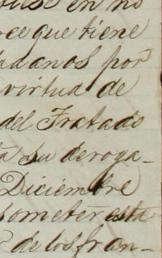 en no
ce que tiene
dadanos por
virtud de
del Tratado
su deroga-
Diciembre
someter este
de los fran-